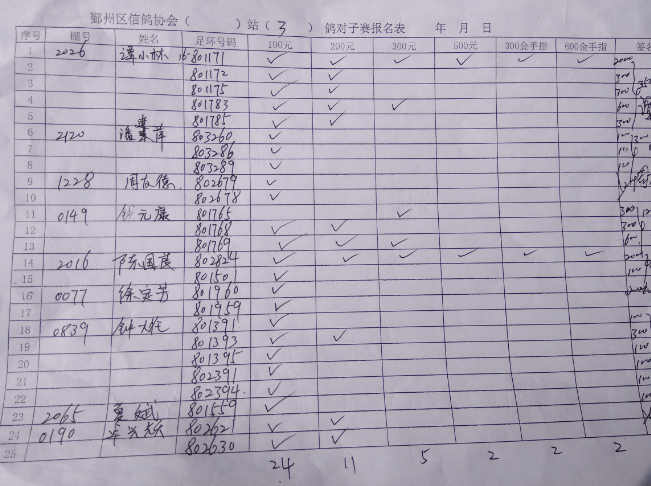 鄞州区信鸽协会( )站(3)鸽对子赛报名表 年 月 日
序号 棚号 姓名 足环号码 100元 200元 300元 500元 300金手指 600金手指 签名
1 2026 谭小林 16-801171 ✓ ✓ ✓ ✓ ✓ ✓ 2000
2 801172 ✓ ✓ 300
3 801175 ✓ ✓ 300
4 801783 ✓ ✓ ✓ 600
5 801785 ✓ ✓ 300
6 2120 潘 萍 803260 ✓ 100
7 803286 ✓ 100
8 803289 ✓ 100
9 1228 周友德 802679 ✓
10 802678 ✓
11 0149 钱元康 801765 ✓ 300
12 801768 ✓ ✓ 300
13 801769 ✓ ✓ ✓ 600
14 2016 陈国 802824 ✓ ✓ ✓ ✓ ✓ ✓ 2000
15 801501 ✓ 100
16 0077 徐定芳 801960 ✓
17 801959 ✓
18 0839 钟 801391 ✓ 100
19 801393 ✓ ✓ 300
20 801395 ✓ 100
21 802391 ✓ 100
22 802394 ✓ 100
23 2065 夏斌 801559 ✓
24 0190 802621 ✓ ✓
25 802630 ✓ ✓
24 11 5 2 2 2